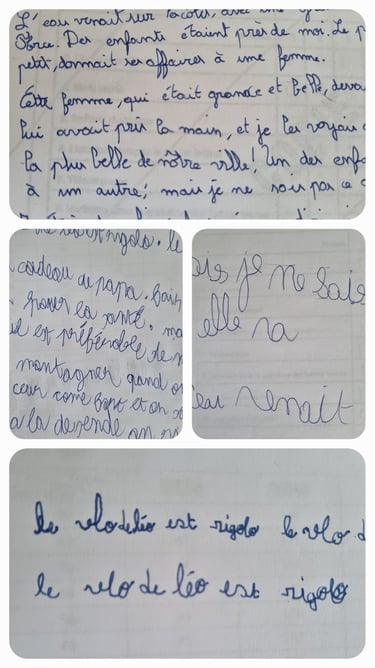 L'eau venait sur la côte, avec une
force. Des enfants étaient près de moi. Le p
petit, donnait ses affaires à une femme.
Cette femme, qui était grande et belle, deva
lui avait pris la main, et je les voyais
la plus belle de nôtre ville! Un des enf
à un autre; mais je ne sais pas ce
rigolo. le
cadeau de papa. Bain
pour la santé. ma
il est préférable de
montagner quand on
cœur come et on
a la desende on
ous je ne sais
elle va
eau venait
le vlo de léo est rigolo le vlo d
le vlo de léo est rigolo